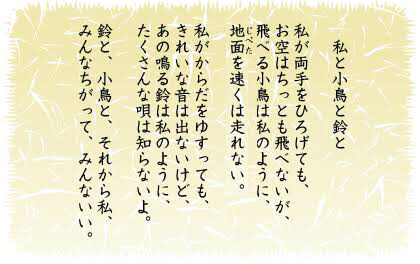 私と小鳥と鈴と
私が両手をひろげても、
お空はちっとも飛べないが、
飛べる小鳥は私のように、
じべた
地面を速くは走れない。
私がからだをゆすっても、
きれいな音は出ないけど、
あの鳴る鈴は私のように、
たくさんな唄は知らないよ。
鈴と、小鳥と、それから私、
みんなちがって、みんないい。